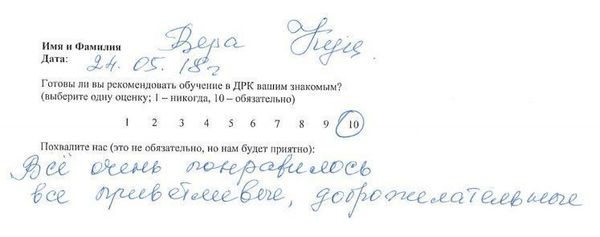 Имя и Фамилия Вера Куц
Дата: 24.05.18г
Готовы ли вы рекомендовать обучение в ДРК вашим знакомым?
(выберите одну оценку; 1 – никогда, 10 – обязательно)
1 2 3 4 5 6 7 8 9 10
Похвалите нас (это не обязательно, но нам будет приятно):
Всё очень понравилось
все приветливые, доброжелательные